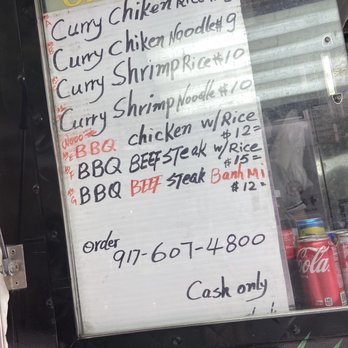 Curry Chiken Rice
Curry Chiken Noodle #9
Curry Shrimp Rice #10
Curry Shrimp Noodle #10
BBQ chicken w/Rice
$12=
BBQ BEEF Steak w/Rice
$15=
BBQ BEEF Steak Banh Mi
$12=
Order
917-607-4800
Cash only
Cola